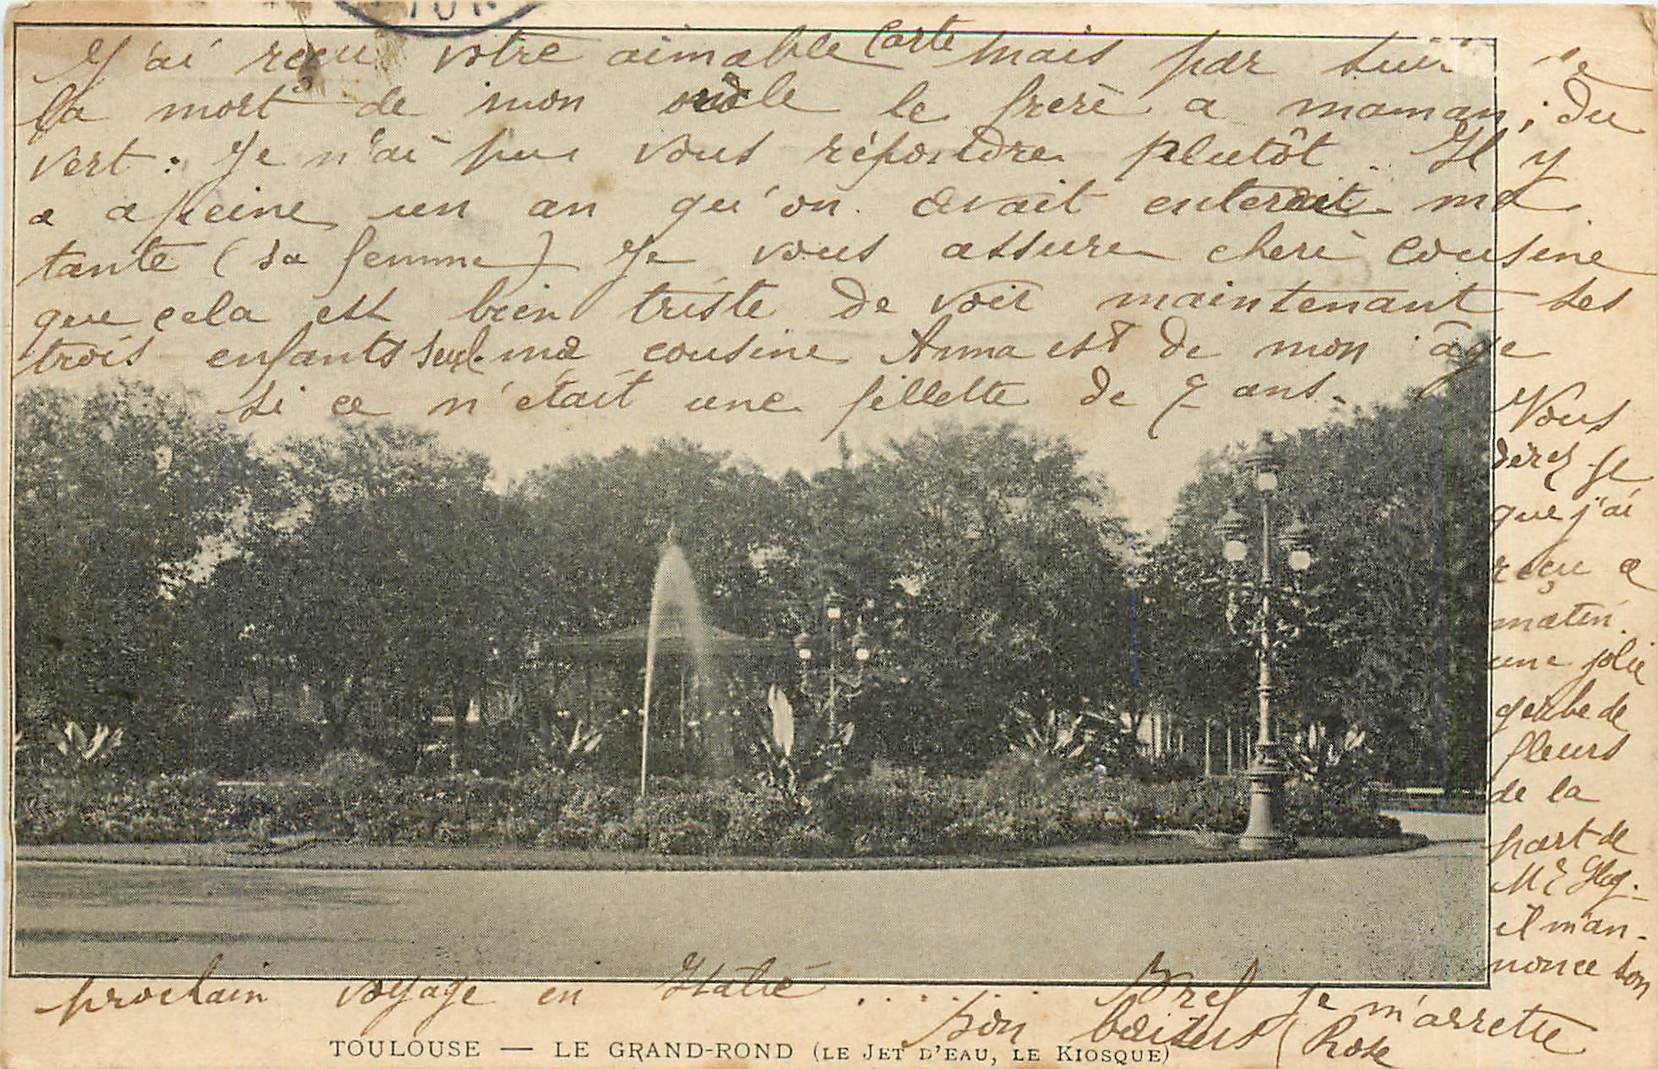 J'ai reçu votre aimable carte mais par suite de
la mort de mon oncle le frere a maman ; du
vert : Je n'ai pu vous répondre plutôt. Il y
a a peine un an qu'on avait enterait ma
tante (sa femme) Je vous assure cherè cousine
que cela est bien triste de voir maintenant ses
trois enfants seul ma cousine Anna est de mon âge
si ce n'était une fillette de 7 ans.
Vous
direz je
que j'ai
reçu ce
matin
une jolie
gerbe de
fleurs
de la
part de
Mr
il m'an-
nonce son
prochain voyage en Italie ....... Bref je m'arrette
bon baisers Rose
TOULOUSE — LE GRAND-ROND (LE JET D'EAU, LE KIOSQUE)